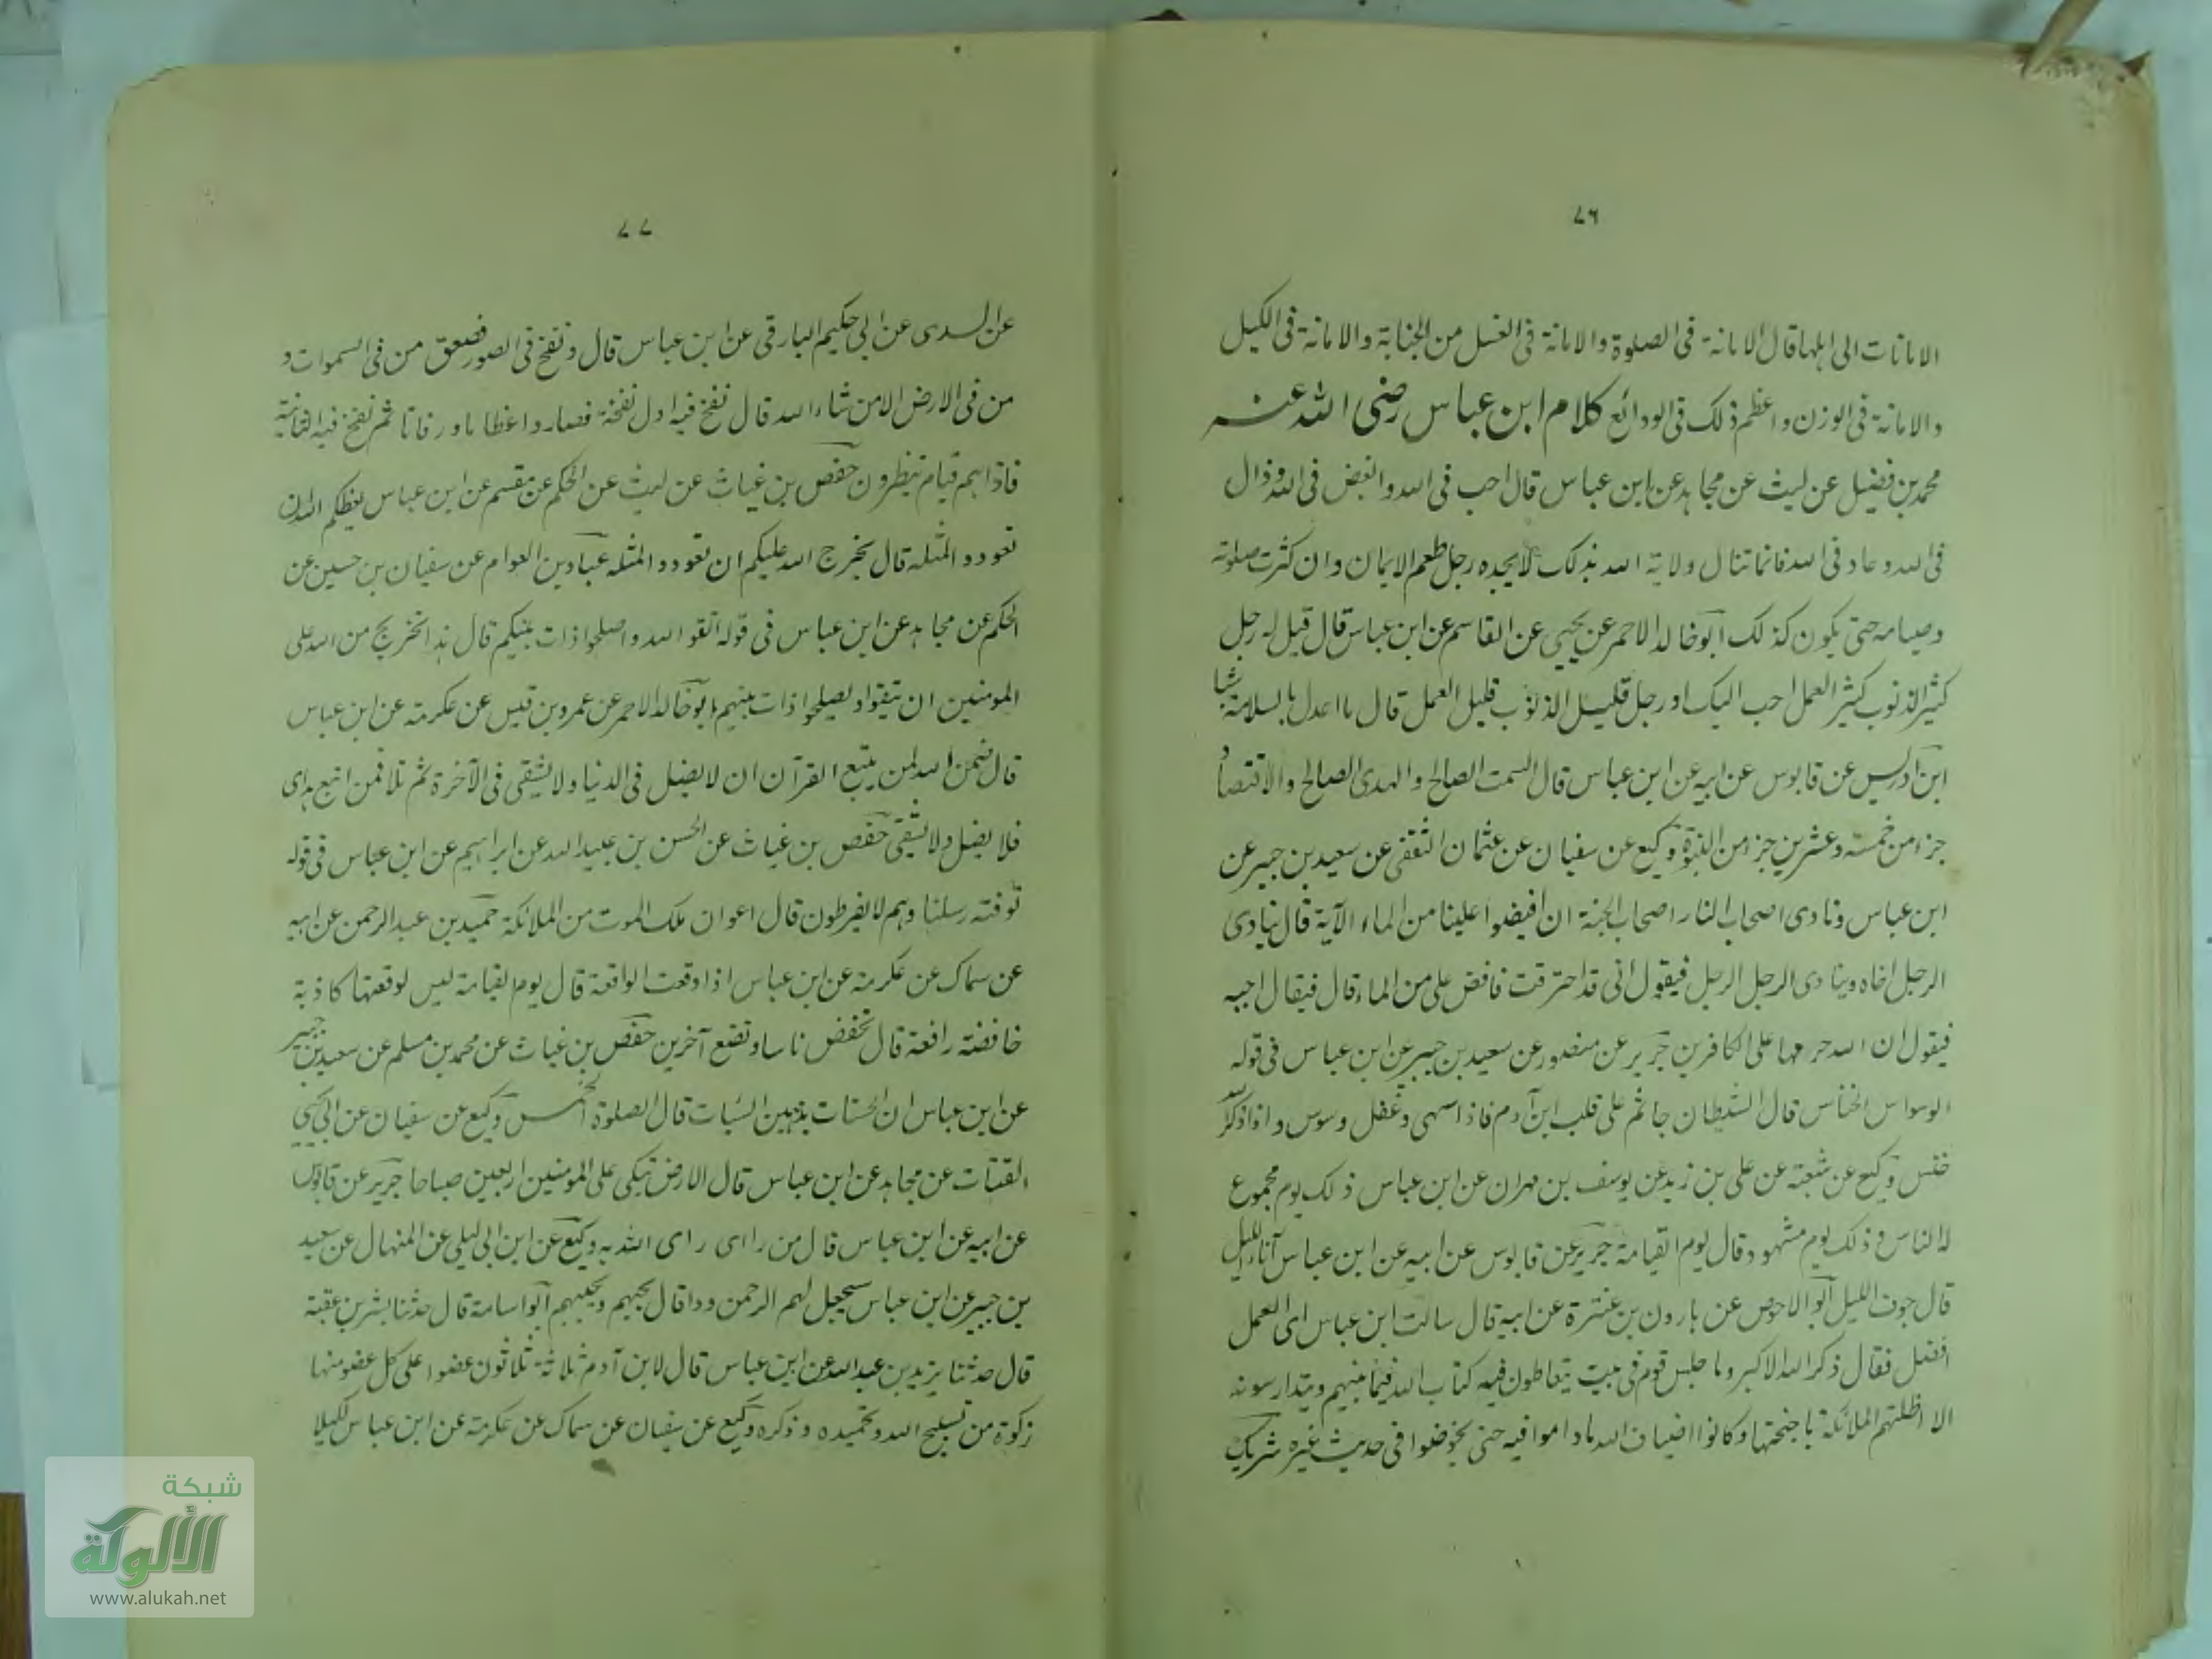 ٧٦
الامانات الى اہلہا قال الامانة فى الصلوة والامانة فى الغسل من الجنابة والامانة فى الكيل
والامانة فى الوزن واعظم ذلك فى الودائع كلام ابن عباس رضى الله عنه
محمد بن فضيل عن ليث عن مجاہد عن ابن عباس قال احب فى الله وابغض فى الله ووال
فى الله وعاد فى الله فانما تنال ولاية الله بذلك لا يجده رجل طعم الايمان وان كثرت صلوته
وصيامه حتى يكون كذلك ابو خالد الاحمر عن يحيى عن القاسم عن ابن عباس قال قيل له رجل
كثير الذنوب كثير العمل احب اليك او رجل قليل الذنوب قليل العمل قال ما اعدل بالسلامة شيا
ابن ادريس عن قابوس عن ابيه عن ابن عباس قال السمت الصالح والهدى الصالح والاقتصاد
جزء من خمسة وعشرين جزء من النبوة وكيع عن سفيان عن عثمان الثقفى عن سعيد بن جبير عن
ابن عباس ونادى اصحاب النار اصحاب الجنة ان افيضوا علينا من الماء الآية قال ينادى
الرجل اخاه وينادى الرجل الرجل فيقول انى قد احترقت فافض على من الماء قال فيقال اجبه
فيقول ان الله حرمہا على الكافرين جرير عن منصور عن سعيد بن جبير عن ابن عباس فى قوله
الوسواس الخناس قال الشيطان جاثم على قلب ابن آدم فاذا سهى وغفل وسوس واذا ذكر الله
خنس وكيع عن شعبة عن على بن زيد عن يوسف بن مهران عن ابن عباس ذلك يوم مجموع
له الناس وذلك يوم مشهود قال يوم القيامة جرير عن قابوس عن ابيه عن ابن عباس آناء الليل
قال جوف الليل ابو الاحوص عن ہارون بن عنترة عن ابيه قال سالت ابن عباس اى العمل
افضل فقال ذكر الله الاكبر وما جلس قوم فى بيت يتعاطون فيه كتاب الله فيما بينهم ويتدارسونه
الا اظلتهم الملائكة باجنحتها وكانوا اضياف الله ماداموا فيه حتى يخوضوا فى حديث غيره شريك
٧٧
عن السدى عن ابى حكيم البارقى عن ابن عباس قال ونفخ فى الصور فصعق من فى السموات و
من فى الارض الا من شاء الله قال نفخ فيه اول نفخة فصاروا عظاما ورفاتا ثم نفخ فيه الثانية
فاذا ہم قيام ينظرون حفص بن غياث عن ليث عن الحكم عن مقسم عن ابن عباس يعظكم الله ان
تعودوا لمثله قال يحرج الله عليكم ان تعودوا لمثله عباد بن العوام عن سفيان بن حسين عن
الحكم عن مجاہد عن ابن عباس فى قوله اتقوا الله واصلحوا ذات بينكم قال ہذا تحريج من الله على
المومنين ان يتقوا ويصلحوا ذات بينهم ابو خالد الاحمر عن عمرو بن قيس عن عكرمة عن ابن عباس
قال ضمن الله لمن يتبع القرآن ان لا يضل فى الدنيا ولا يشقى فى الآخرة ثم تلا فمن اتبع ہداى
فلا يضل ولا يشقى حفص بن غياث عن الحسن بن عبيد الله عن ابراہيم عن ابن عباس فى قوله
توفته رسلنا وہم لا يفرطون قال اعوان ملك الموت من الملائكة حميد بن عبد الرحمن عن ابيه
عن سماك عن عكرمة عن ابن عباس اذا وقعت الواقعة قال يوم القيامة ليس لوقعتها كاذبة
خافضة رافعة قال تخفض ناسا وتضع آخرين حفص بن غياث عن محمد بن مسلم عن سعيد بن جبير
عن ابن عباس ان الحسنات يذہبن السيئات قال الصلوة الخمس وكيع عن سفيان عن ابى يحيى
القتات عن مجاہد عن ابن عباس قال الارض تبكى على المومنين اربعين صباحا جرير عن قابوس
عن ابيه عن ابن عباس قال من راءى راءى الله به وكيع عن ابن ابى ليلى عن المنهال عن سعيد
بن جبير عن ابن عباس سيجعل لهم الرحمن ودا قال يحبهم ويحببهم ابو اسامة قال حدثنا بشر بن عقبة
قال حدثنا يزيد بن عبد الله عن ابن عباس قال لابن آدم ثلاثة ثلاثون عضوا على كل عضو منها
زكوة من تسبيح الله وتحميده وذكره وكيع عن سفيان عن سماك عن عكرمة عن ابن عباس لكيلا
شبكة
الألوكة
www.alukah.net